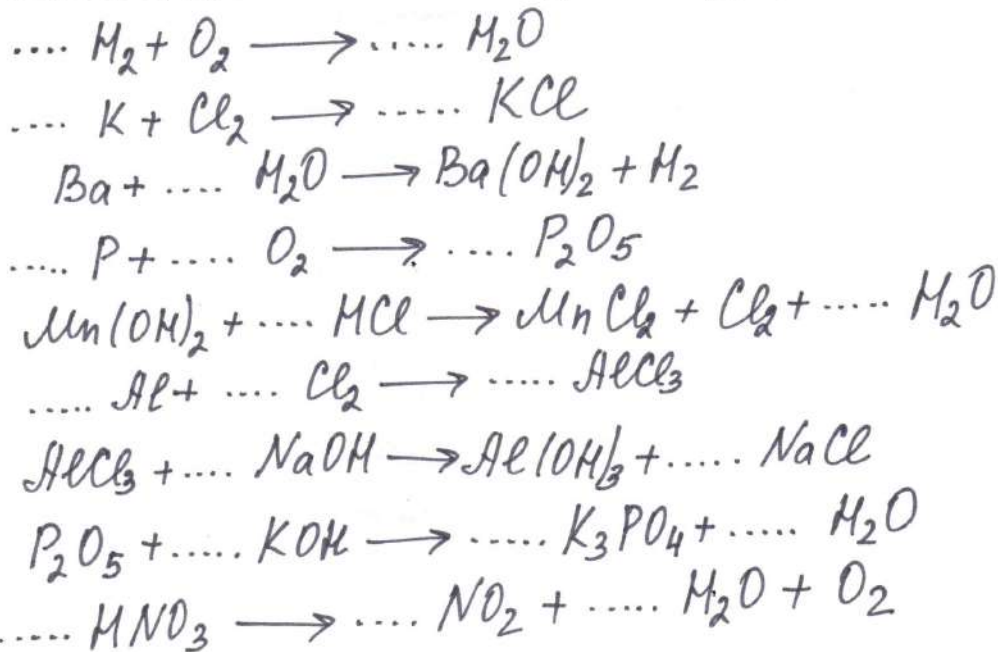 .... H₂ + O₂ ⟶ ..... H₂O
.... K + Cl₂ ⟶ ...... KCl
Ba + .... H₂O ⟶ Ba(OH)₂ + H₂
..... P + .... O₂ ⟶ .... P₂O₅
Mn(OH)₂ + .... HCl ⟶ MnCl₂ + Cl₂ + ..... H₂O
..... Al + .... Cl₂ ⟶ ..... AlCl₃
AlCl₃ + .... NaOH ⟶ Al(OH)₃ + ...... NaCl
P₂O₅ + ..... KOH ⟶ ..... K₃PO₄ + ..... H₂O
..... HNO₃ ⟶ .... NO₂ + ..... H₂O + O₂